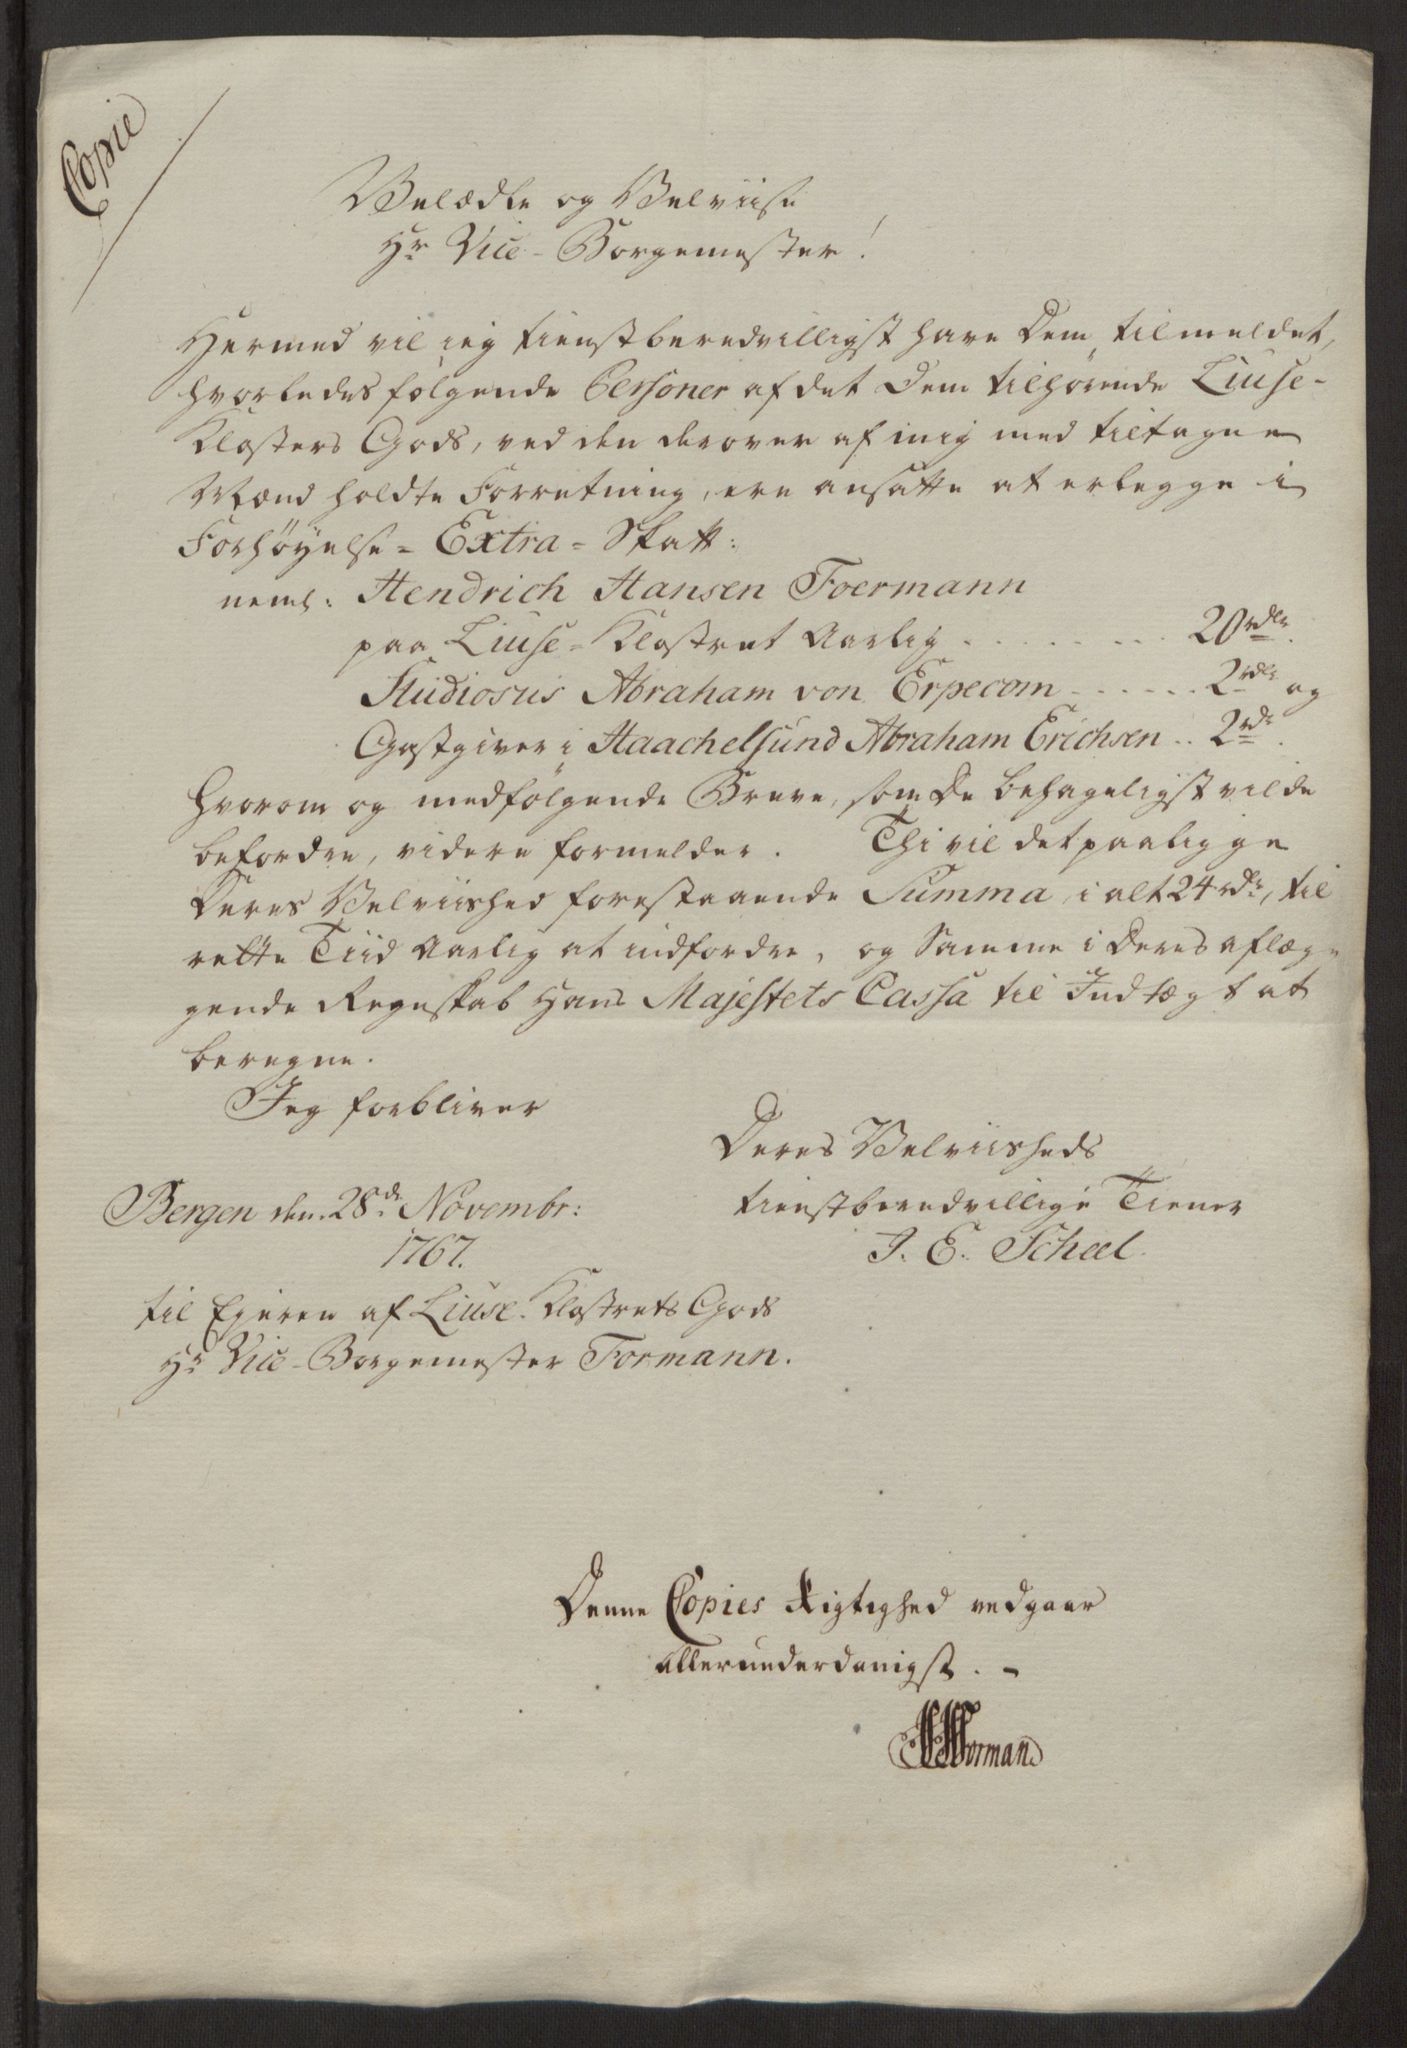 Copie
Velædle og Velviise
Hr Vice-Borgemester!
Hermed vil ieg tienstberedvilligst have Dem tilmeldet,
hvorledes følgende Personer af det Dem tilhørende Liuse-
Klosters Gods, ved den derover af mig med tiltagne
Mænd holdte Forretning, ere ansatte at erlegge i
Forhøyelse = Extra = Skatt:
neml: Hendrich Hansen Foermann
paa Liuse = Klostret Aarlig . . . . . . . 20 rdlr
Studiosus Abraham von Erpecom - - - . . . 2 rdlr og
Gastgiver i Haachelsund Abraham Erichsen . . 2 rdr.
hvorom og medfølgende Breve, som De behageligst vilde
befordre, videre formelder. Thi vil det paaligge
Deres Velviished forestaaende Summa, i alt 24 rdr, til
rette Tiid Aarlig at indfordre, og Samme i Deres aflæg-
gende Regnskab Hans Majestets Cassa til Indtægt at
beregne.
Jeg forbliver
Deres Velviisheds
tienstberedvillige Tiener
J. E. Scheel.
Bergen den 28de Novembr:
1767.
til Ejeren af Liuse-Klostrets Gods
Hr Vice-Borgemester Formann.
Denne Copies Rigtighed vedgaar
allerunderdanigst. -
Forman